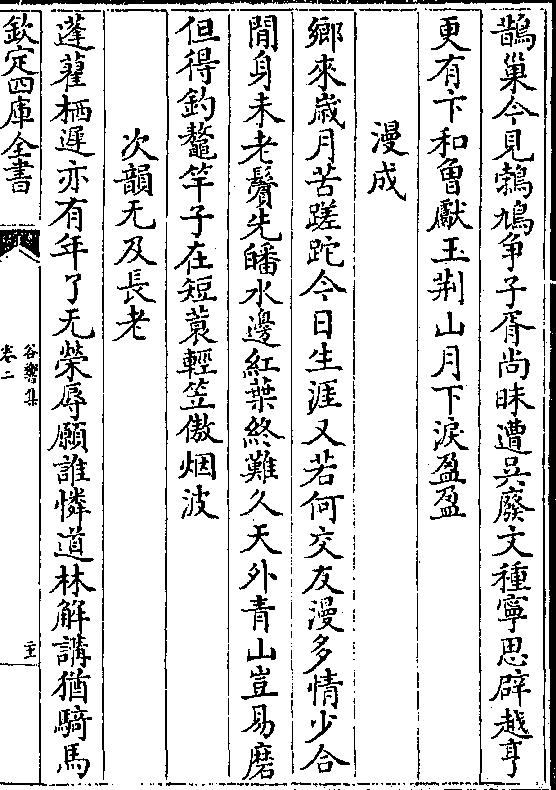 鵲巢今見鶉鳩爭子胥尚昧遭吳廢文種寧思辟越亨
更有卞和曾獻玉荆山月下淚盈盈
漫成
鄉來歲月苦蹉跎今日生涯又若何交友漫多情少合
閒身未老鬢先皤水邊紅葉終難久天外青山豈易磨
但得釣鼇竿子在短蓑輕笠傲烟波
次韻无及長老
蓬藋栖遲亦有年了无榮辱願誰憐道林解講猶騎馬
欽定四庫全書
谷響集
卷二